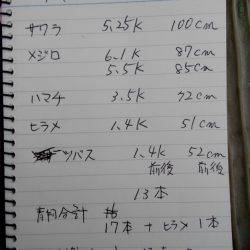 サワラ 5.25K 100cm
メジロ 6.1K 87cm
5.5K 85cm
ハマチ 3.5K 72cm
ヒラメ 1.4K 51cm
ツバス 1.4K 52cm
前後 前後
13本
青物合計
17本 + ヒラメ 1本